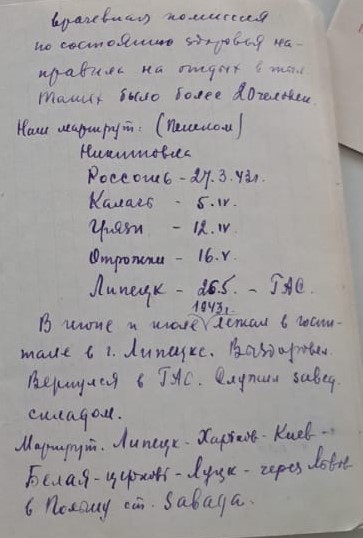 врачебная комиссия
по состоянию здоровья на-
правила на отдых в тыл.
Таких было более 20 человек.
Наш маршрут: (Пешком)
Никитовка
Россошь - 27.3.43г.
Калач - 5.IV.
Грязи - 12.IV.
Отрожки - 16.V.
Липецк - 26.5. - ГАС.
1943г.
В июне и июле лежал в госпи-
тале в г. Липецке. Выздоровел.
Вернулся в ГАС. Служил завед.
складом.
Маршрут. Липецк - Харьков - Киев -
Белая-церковь - Луцк - через Львов
в Польшу ст. Завада.